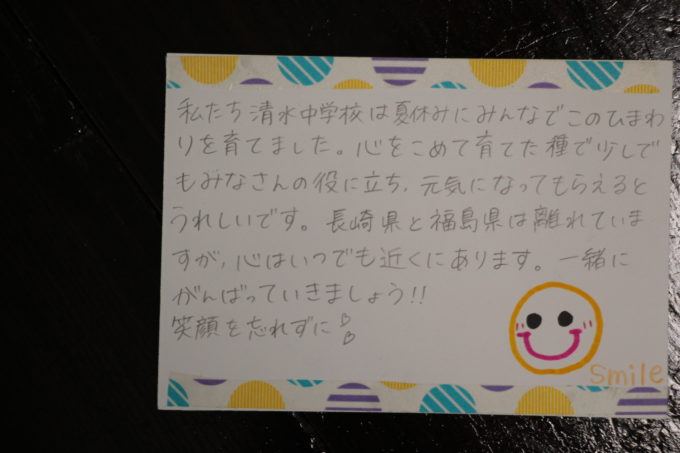 私たち清水中学校は夏休みにみんなでこのひまわ
りを育てました。心をこめて育てた種で少しで
もみなさんの役に立ち、元気になってもらえると
うれしいです。長崎県と福島県は離れていま
すが、心はいつでも近くにあります。一緒に
がんばっていきましょう!!
笑顔を忘れずに
smile